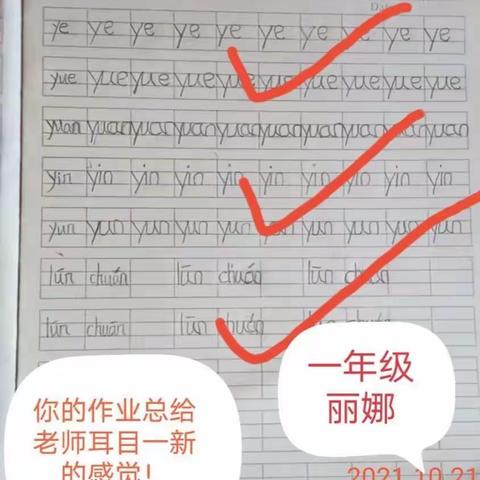 ye ye ye ye ye ye ye ye ye ye
yue yue yue yue yue yue yue yue yue
yuan yuan yuan yuan yuan yuan yuan yuan yuan
yin yin yin yin yin yin yin yin yin
yun yun yun yun yun yun yun yun yun
lún chuán lún chuán lún chuán
lún chuán lún chuán
一年级
丽娜
你的作业总给
老师耳目一新
的感觉!
2021.10.21